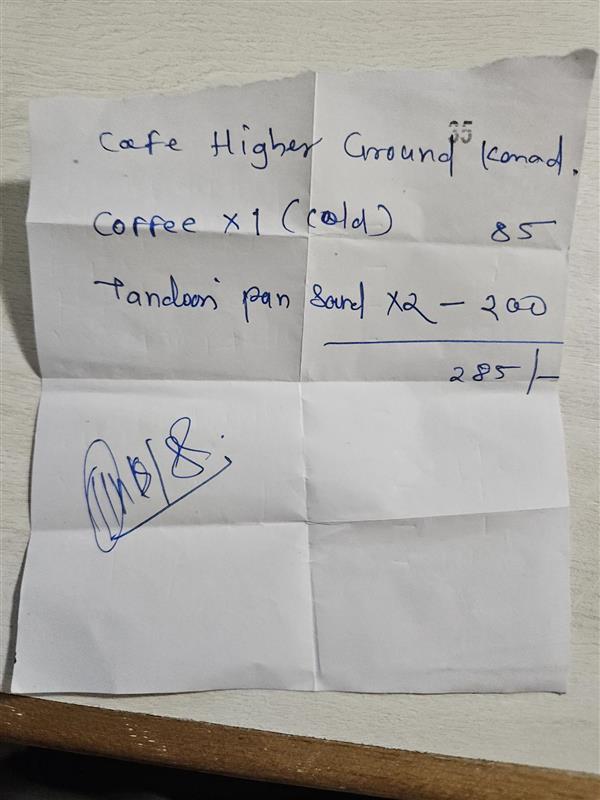 35
Cafe Higher Ground Kanad.
Coffee x 1 (Cold) 85
Tandoori pan Sand x2 - 200
285/-